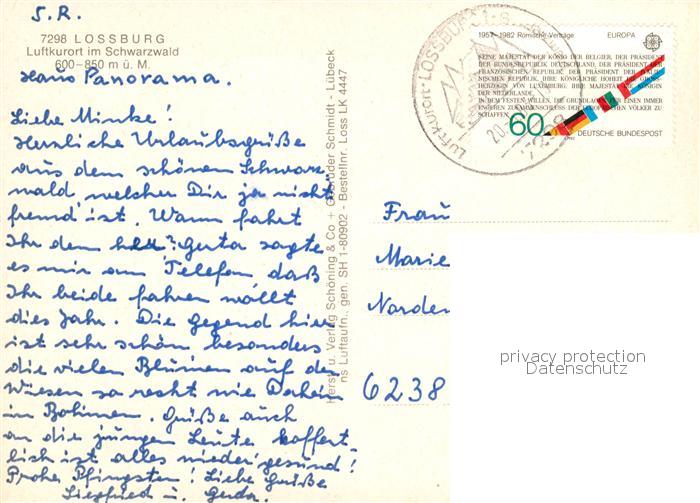 S.R.
7298 LOSSBURG
Luftkurort im Schwarzwald
600-850 m ü. M.
Haus Panorama.
Liebe Minke!
Herzliche Urlaubsgrüße
aus dem schönen Schwarz
wald welcher Dir ja nicht
fremd ist. Wann fahrt
Ihr denn ? Gerta sagte
es mir am Telefon daß
Ihr beide fahren wollt
dies Jahr. Die Gegend hier
ist sehr schön besonders
die vielen Blumen auf den
Wiesen so recht wie Daheim
in Böhmen. Grüße auch
an die jungen Leute hoffent-
lich ist alles wieder gesund!
Frohe Pfingsten! Liebe Grüße
Siegfried u. Gerda.
Herst. u. Verlag Schöning & Co + Gebrüder Schmidt - Lübeck
ns Luftaufn., gen. SH 1-80902 - Bestellnr. Loss LK 4447
LUFTKURORT LOSSBURG
20.
7298
1957-1982 Römische Verträge EUROPA
SEINE MAJESTÄT DER KÖNIG DER BELGIER, DER PRÄSIDENT
DER BUNDESREPUBLIK DEUTSCHLAND, DER PRÄSIDENT DER
FRANZÖSISCHEN REPUBLIK, DER PRÄSIDENT DER ITALIE-
NISCHEN REPUBLIK, IHRE KÖNIGLICHE HOHEIT DIE GROSS-
HERZOGIN VON LUXEMBURG, IHRE MAJESTÄT DIE KÖNIGIN
DER NIEDERLANDE,
IN DEM FESTEN WILLEN, DIE GRUNDLAGEN FÜR EINEN IMMER
ENGEREN ZUSAMMENSCHLUSS DER EUROPÄISCHEN VÖLKER ZU
SCHAFFEN
60
DEUTSCHE BUNDESPOST
Frau
Marie
Norden
6238
privacy protection
Datenschutz